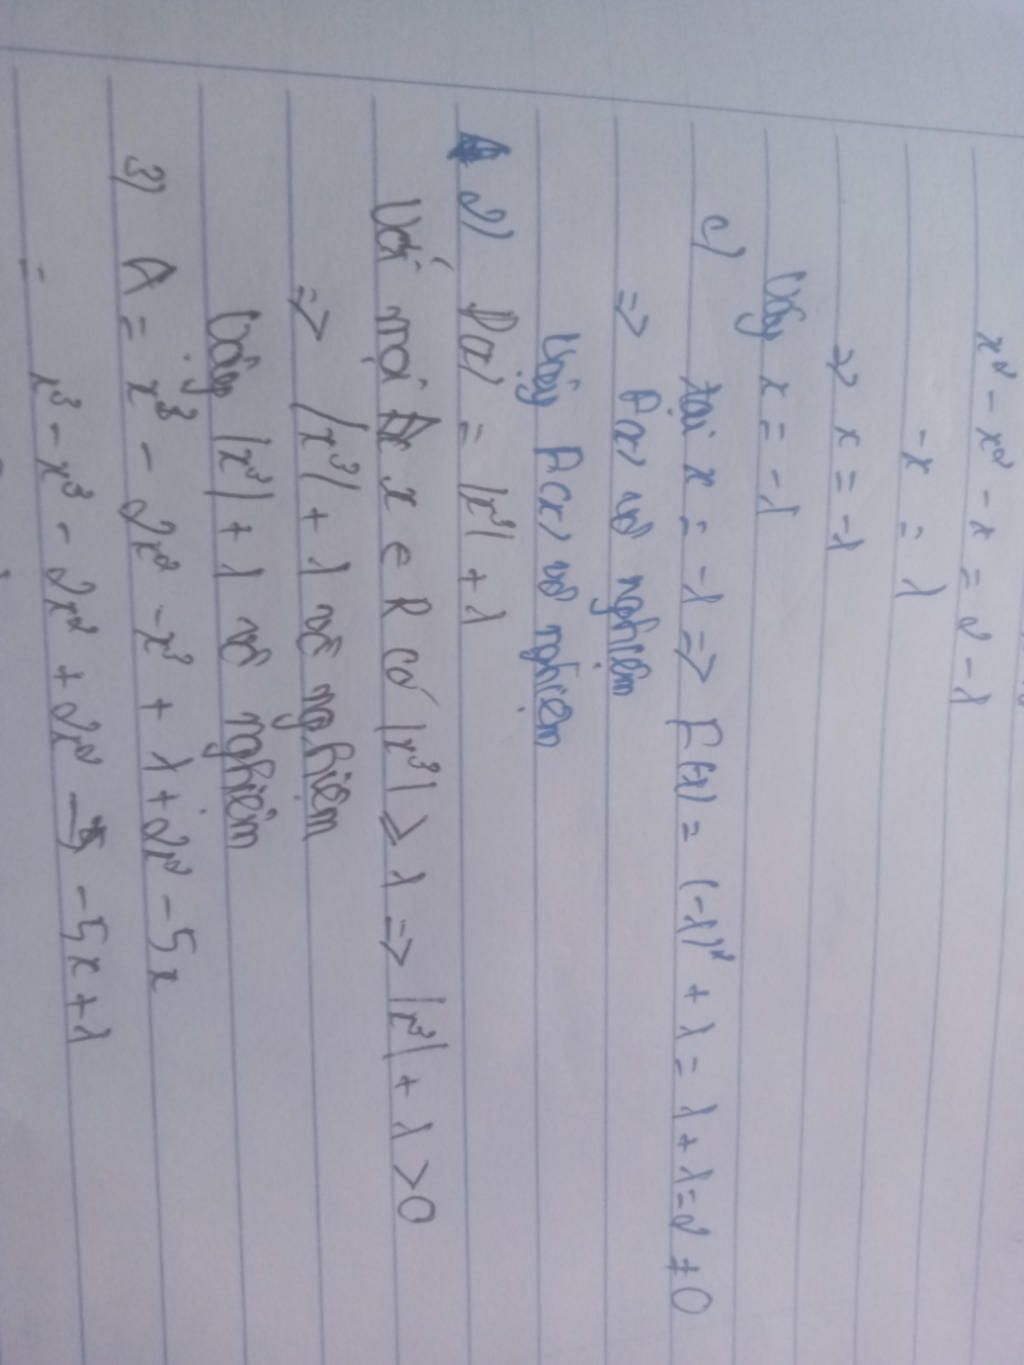 x² - x² - x = 2 - 1
-x = 1
=> x = -1
Vậy x = -1
c) tại x = -1 => F(x) = (-1)² + 1 = 1 + 1 = 2 ≠ 0
=> A(x) vô nghiệm
Vậy A(x) vô nghiệm
2) P(x) = |x³| + 1
Với mọi x ∈ R có |x³| ≥ 1 => |x³| + 1 > 0
=> |x³| + 1 vô nghiệm
Vậy |x³| + 1 vô nghiệm
3) A = x³ - 2x² - x³ + 1 + 2x² - 5x
= x³ - x³ - 2x² + 2x² - 5x + 1